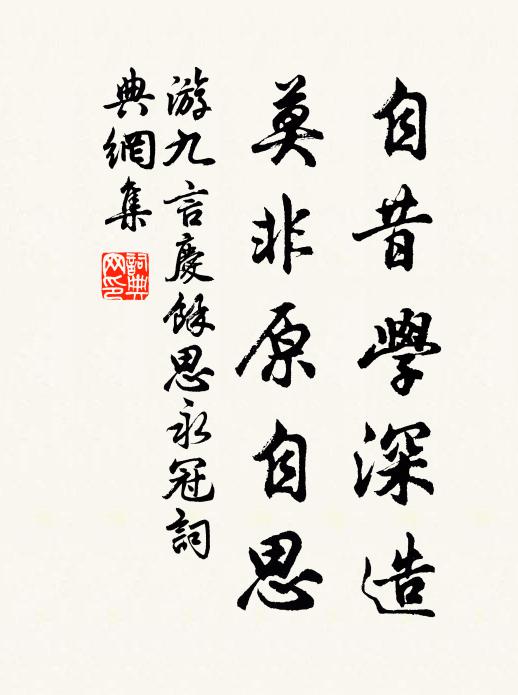 自昔學深造
莫非原自思
游九言慶餘思永冠詞
典網集
詞典網印